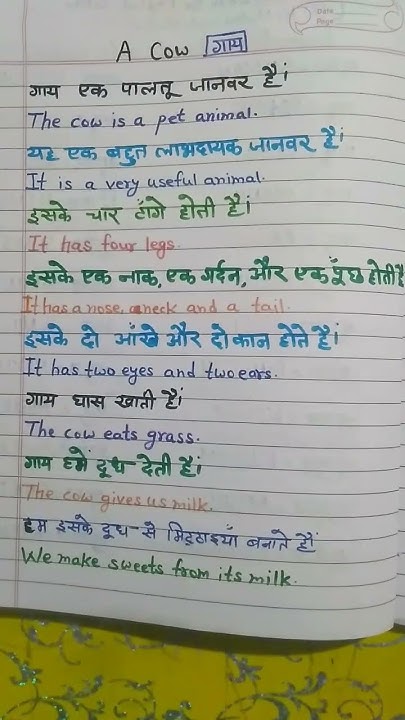 Date
Page
A Cow गाय
गाय एक पालतू जानवर हैं।
The cow is a pet animal.
यह एक बहुत लाभदायक जानवर हैं।
It is a very useful animal.
इसके चार टांगे होती हैं।
It has four legs.
इसके एक नाक, एक गर्दन, और एक पूँछ होती है
It has a nose, a neck and a tail.
इसके दो आँखे और दो कान होते हैं।
It has two eyes and two ears.
गाय घास खाती हैं।
The cow eats grass.
गाय हमें दूध देती हैं।
The cow gives us milk.
हम इसके दूध से मिठ्ठाइयाँ बनाते हैं।
We make sweets from its milk.